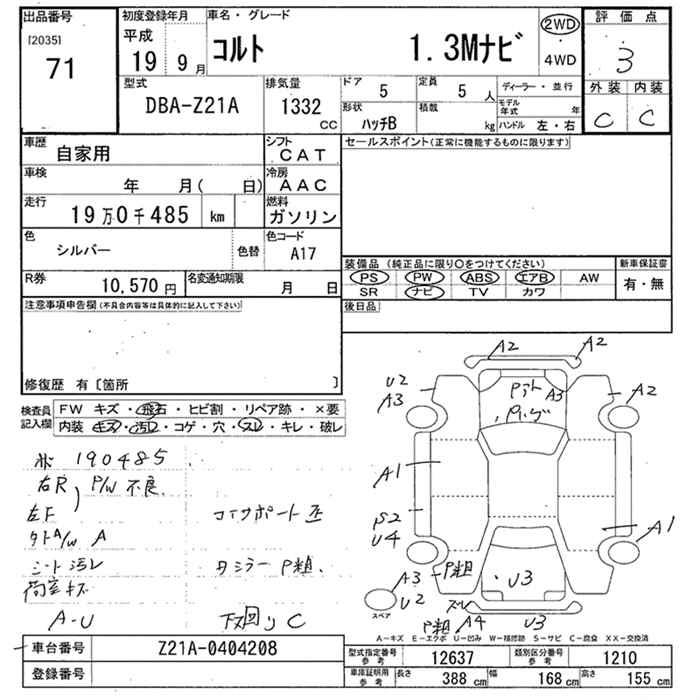 出品番号
[2035]
71
初度登録年月
平成
19年9月
車名・グレード
コルト 1.3Mナビ
2WD
・
4WD
評価点
3
外装 内装
C C
型式
DBA-Z21A
排気量
1332
CC
ドア 5
定員 5 人
形状 ハッチB
積載 kg
ディーラー・並行
モデル年式 年
ハンドル 左・右
車歴
自家用
シフト
CAT
セールスポイント(正常に機能するものに限ります)
車検
年 月( 日)
冷房
AAC
走行
19万0千485 km
燃料
ガソリン
色
シルバー
色替
色コード
A17
装備品 (純正品に限り○をつけてください)
PS PW ABS エアB AW
SR ナビ TV カワ
新車保証書
有・無
R券
10,570 円
名変通知期限
月 日
注意事項申告欄(不具合内容等は具体的に記入して下さい)
後日品
修復歴 有〔箇所 〕
検査員
記入欄
FW キズ・飛石・ヒビ割・リペア跡・×要
内装 キズ・汚レ・コゲ・穴・スレ・キレ・破レ
190485
右R
左F
P/W 不良
A/W A
シート汚レ
荷室キズ
コアサポート
P粗
A-U
下廻り C
A2
A2
U2
A3
A3
A2
A1
S2
U4
A1
A3
P粗
U2
U3
スレ
P粗
A4
U3
スペア
A-キズ E-エクボ U-凹み W-補修跡 S-サビ C-腐食 XX-交換済
車台番号
Z21A-0404208
登録番号
型式指定番号
参考
12637
類別区分番号
参考
1210
車庫証明用
参考
長さ 388 cm
幅 168 cm
高さ 155 cm